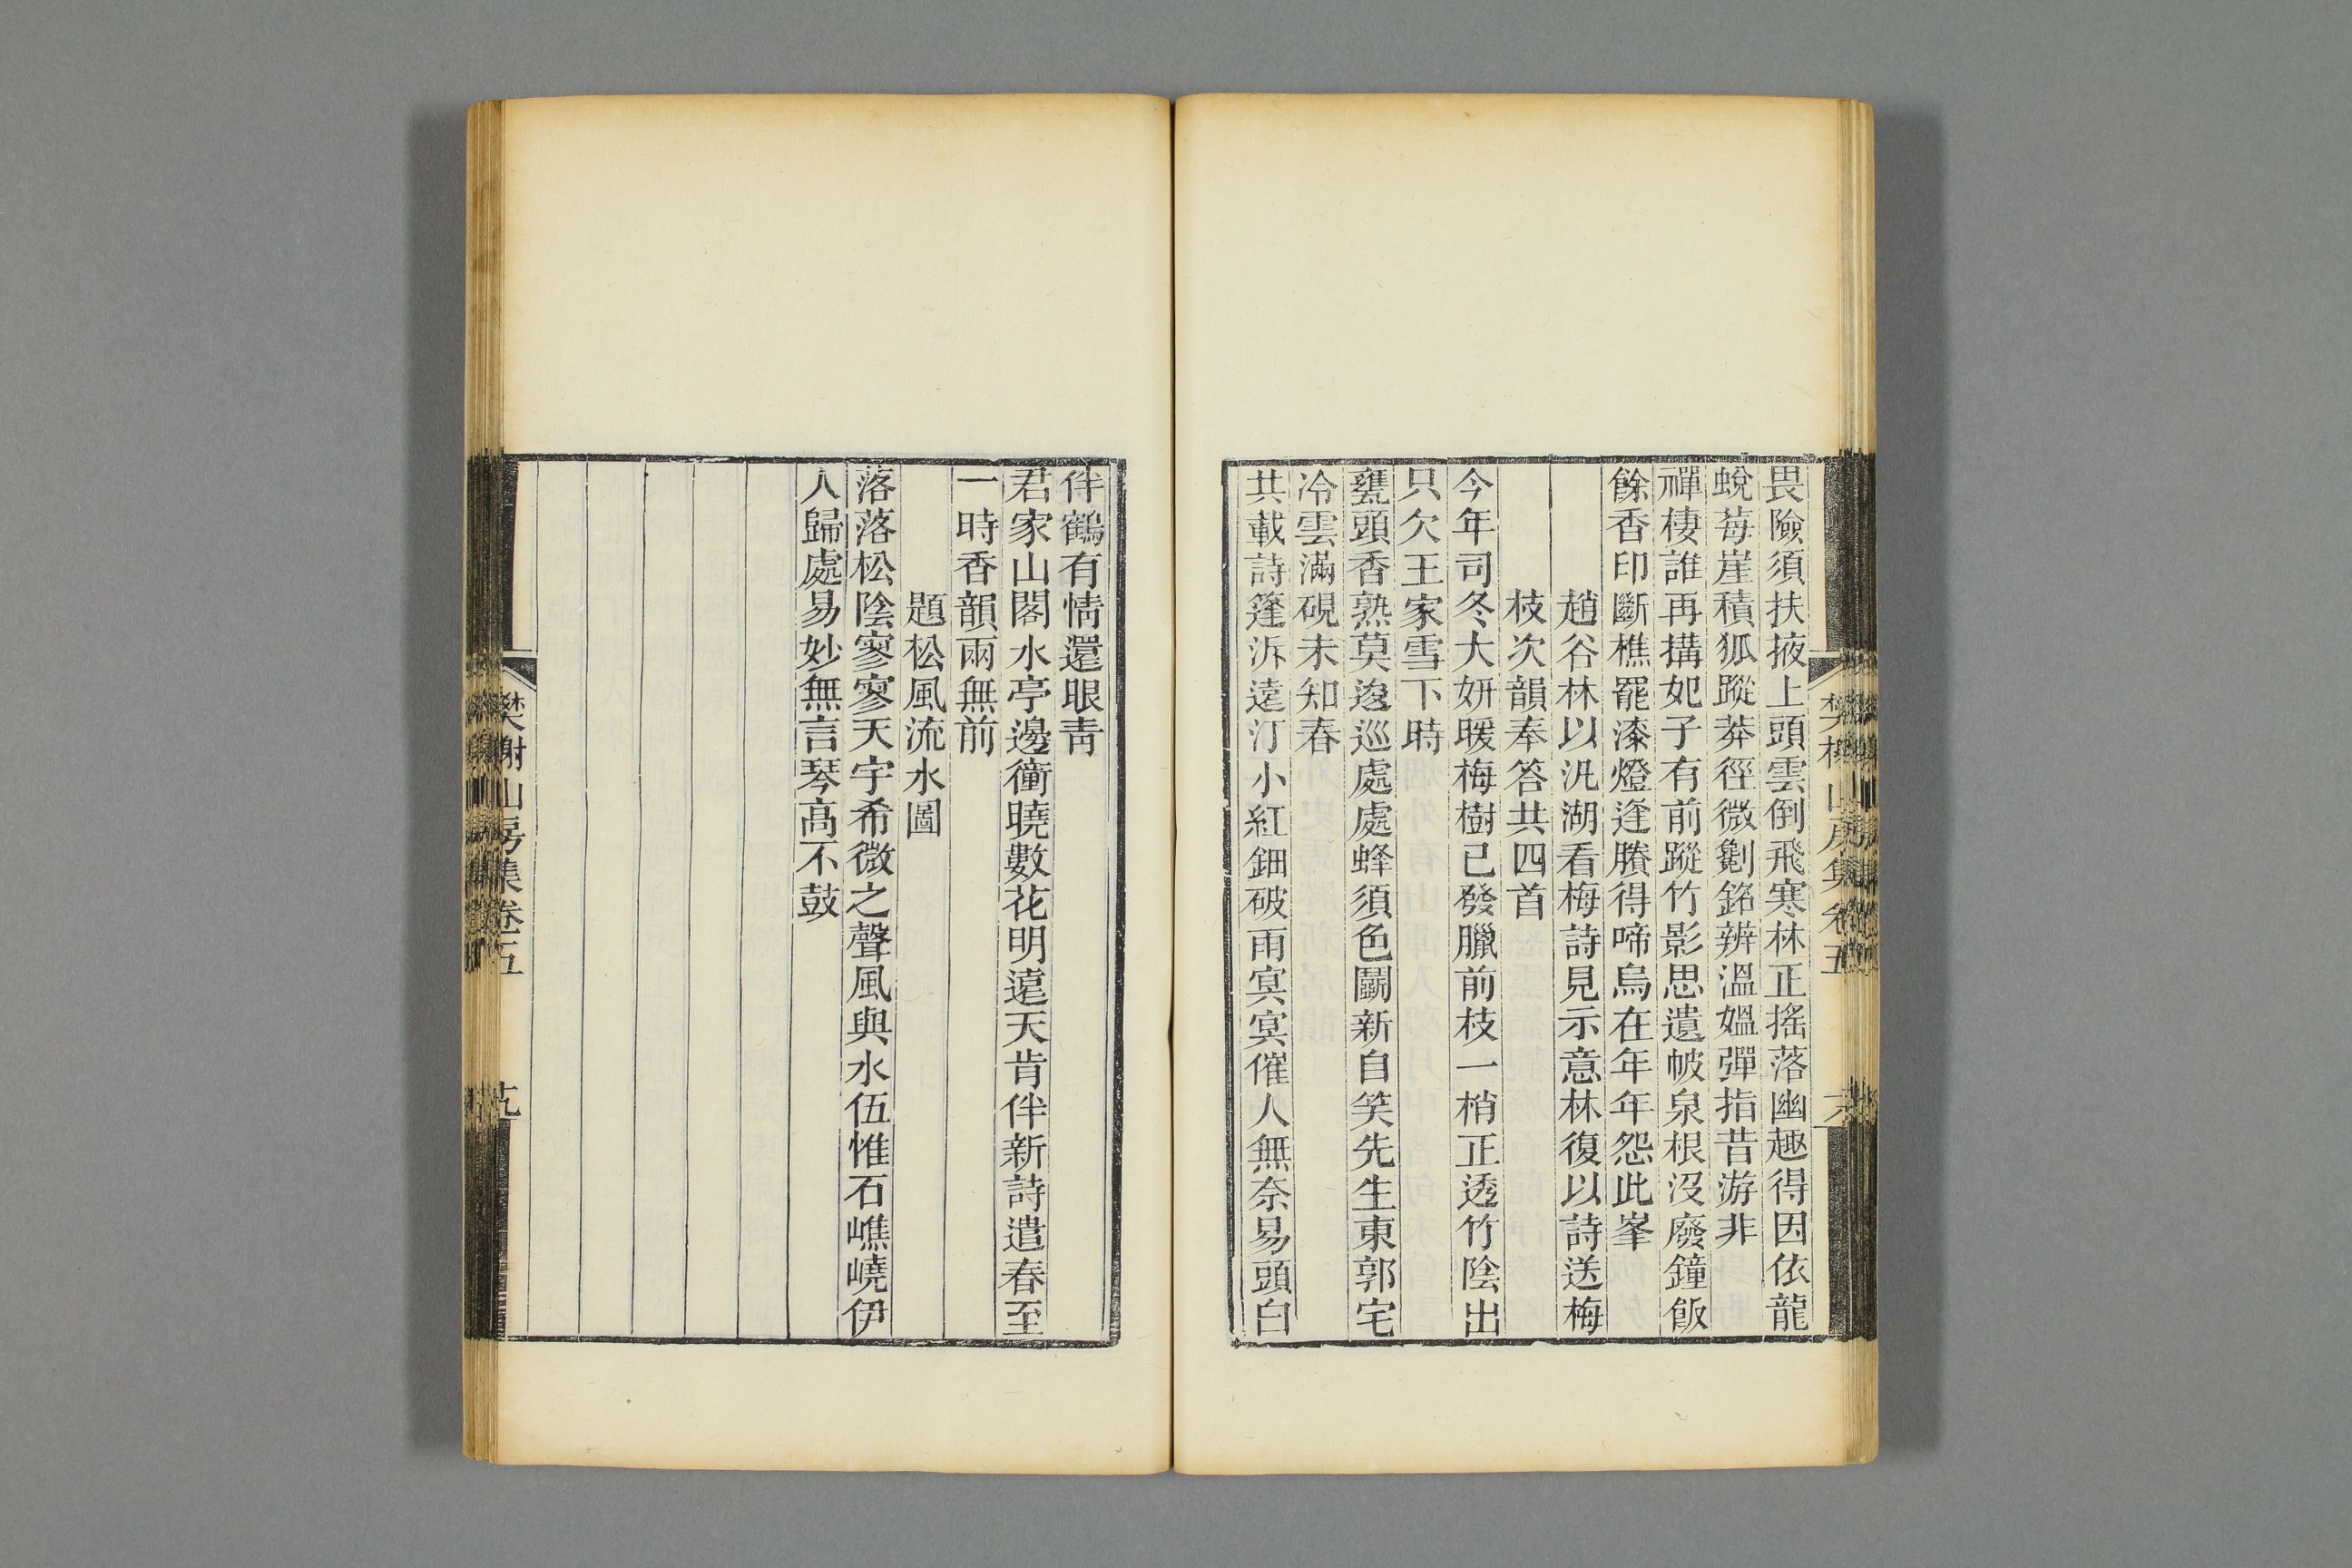 畏險須扶掖上頭雲倒飛寒林正搖落幽趣得因依龍
蛻莓崖積狐蹤莽徑微劖銘辨溫媼彈指昔游非
禪棲誰再搆妃子有前蹤竹影思遺帔泉根沒廢鐘飯
餘香印斷樵罷漆燈逢賸得啼烏在年年怨此峯
趙谷林以汎湖看梅詩見示意林復以詩送梅
枝次韻奉答共四首
今年司冬大妍暖梅樹已發臘前枝一梢正透竹陰出
只欠王家雪下時
甕頭香熟莫逡巡處處蜂須色鬭新自笑先生東郭宅
冷雲滿硯未知春
共載詩篷泝遠汀小紅鈿破雨冥冥催人無奈易頭白
樊榭山房集卷五
伴鶴有情還眼靑
君家山閣水亭邊衝曉數花明遠天肯伴新詩遣春至
一時香韻兩無前
題松風流水圖
落落松陰寥寥天宇希微之聲風與水伍惟石嶕嶢伊
人歸處易妙無言琴高不鼓
樊榭山房集卷五